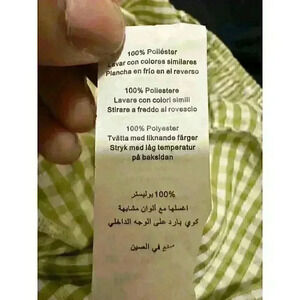 100% Poliéster
Lavar con colores similares
Plancha en frío en el reverso
100% Poliestere
Lavare con colori simili
Stirare a freddo al rovescio
100% Polyester
Tvätta med liknande färger
Stryk med låg temperatur
på baksidan
100% بوليستر
اغسلها مع ألوان مشابهة
كوي بارد على الوجه الداخلي
صنع في الصين